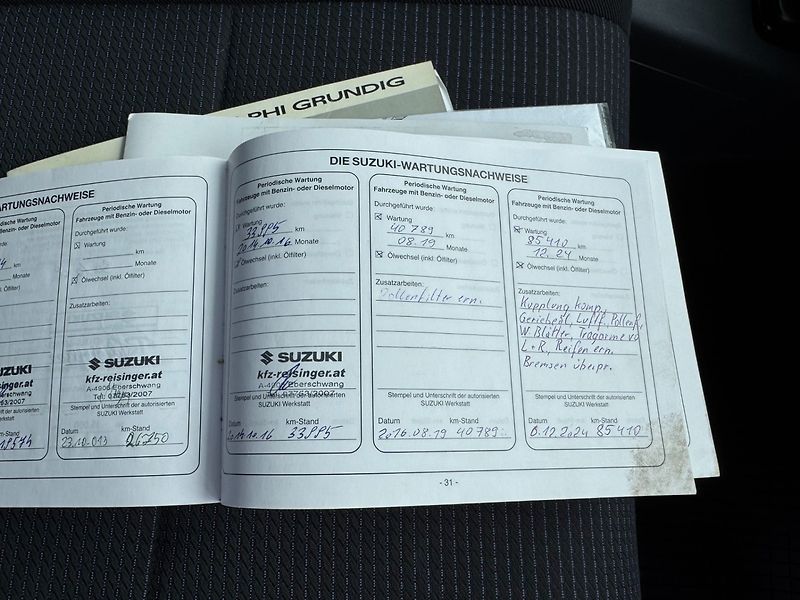 PHI GRUNDIG
ARTUNGSNACHWEISE
Wartung
Benzin- oder Dieselmotor
wurde:
km
Monate
(inkl. Ölfilter)
UZUKI
singer.at
Eberschwang
63/2007
Unterschrift der autorisierten
Werkstatt
km-Stand
Periodische Wartung
Fahrzeuge mit Benzin- oder Dieselmotor
Durchgeführt wurde:
Wartung
km
Monate
Ölwechsel (inkl. Ölfilter)
Zusatzarbeiten:
SUZUKI
kfz-reisinger.at
A-4906 Eberschwang
Tel: 07753/2007
Stempel und Unterschrift der autorisierten
SUZUKI Werkstatt
Datum km-Stand
23.10.013 26750
DIE SUZUKI-WARTUNGSNACHWEISE
Periodische Wartung
Fahrzeuge mit Benzin- oder Dieselmotor
Durchgeführt wurde:
Wartung
33995 km
2014.10.16 Monate
Ölwechsel (inkl. Ölfilter)
Zusatzarbeiten:
SUZUKI
kfz-reisinger.at
A-4906 Eberschwang
Stempel und Unterschrift der autorisierten
SUZUKI Werkstatt
Datum km-Stand
2014.10.16 33995
Periodische Wartung
Fahrzeuge mit Benzin- oder Dieselmotor
Durchgeführt wurde:
Wartung
40789 km
08.19 Monate
Ölwechsel (inkl. Ölfilter)
Zusatzarbeiten:
Pollenfilter ern.
Stempel und Unterschrift der autorisierten
SUZUKI Werkstatt
Datum km-Stand
2016.08.19 40789
Periodische Wartung
Fahrzeuge mit Benzin- oder Dieselmotor
Durchgeführt wurde:
Wartung
85410 km
12.24 Monate
Ölwechsel (inkl. Ölfilter)
Zusatzarbeiten:
Kupplung komp,
Geriebeöl, Luftf, Pollenf,
W. Blätter, Tragarme vo
L+R, Reifen ern.
Bremsen überpr.
Stempel und Unterschrift der autorisierten
SUZUKI Werkstatt
Datum km-Stand
12.2024 85410
- 31 -